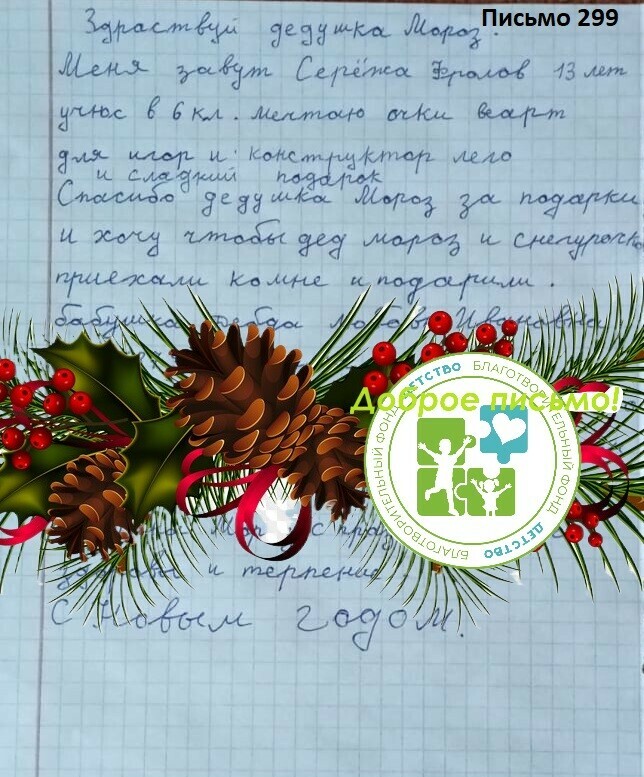 Письмо 299
Здраствуй дедушка Мороз.
Меня завут Серёжа Фролов 13 лет
учюс в 6 кл. мечтаю очки веарт
для игор и конструктор лего
и сладкий подарок
Спасибо дедушка Мороз за подарки
и хочу чтобы дед мороз и снегурочка
приехали ко мне и подарили.
бабушка Ивановна
Доброе письмо!
БЛАГОТВОРИТЕЛЬНЫЙ ФОНД ДЕТСТВО БЛАГОТВОРИТЕЛЬНЫЙ ФОНД ДЕТСТВО
и терпения
С Новым годом.